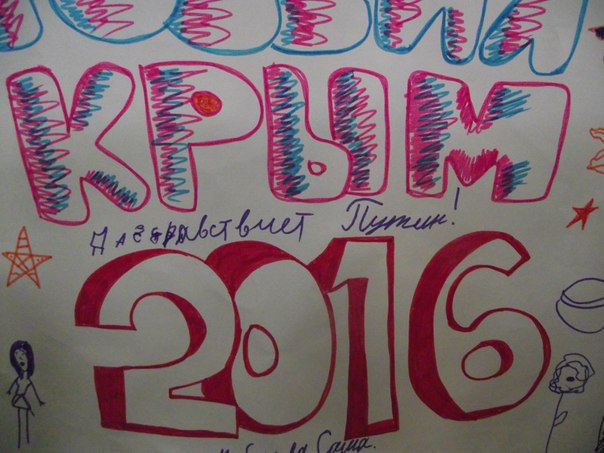 КРЫМ
Да здравствует Путин!
2016
Саша.